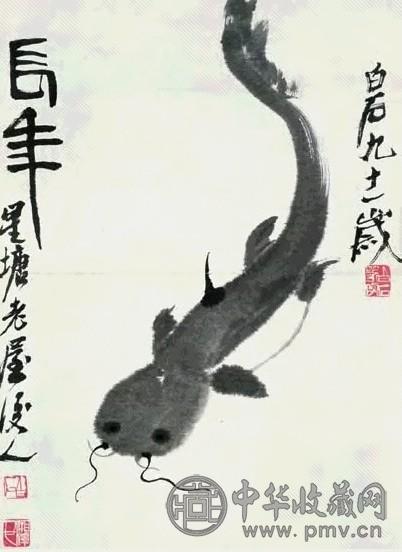 長年
星塘老屋後人
白石九十一歲
中华收藏网
www.pmv.cn